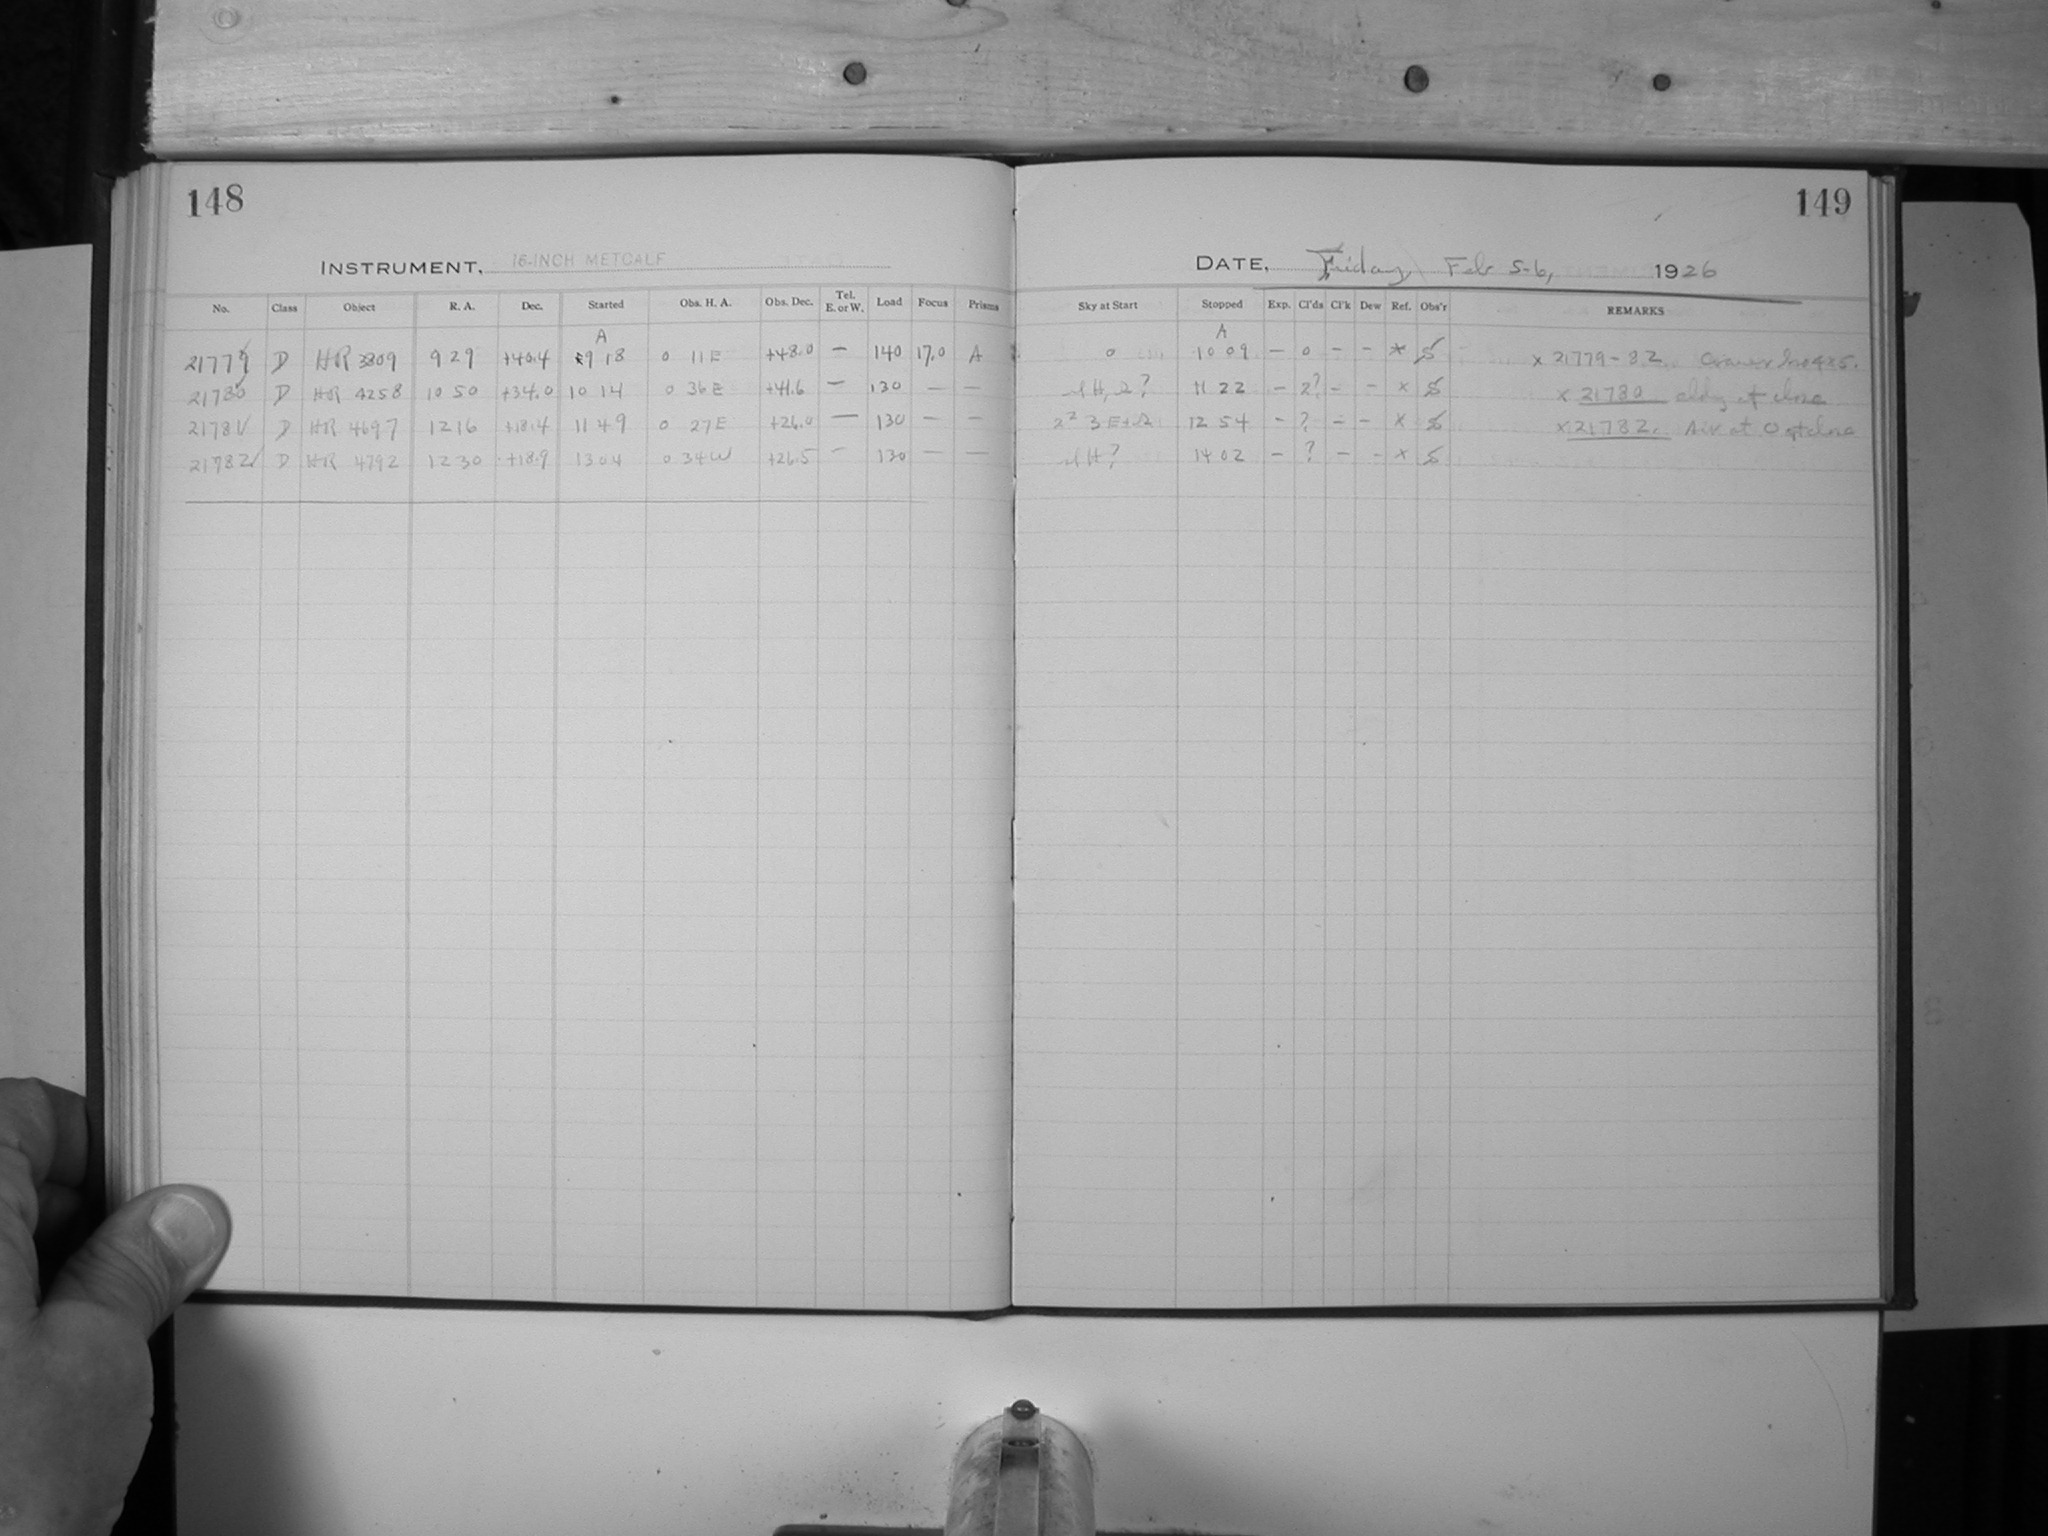 148
INSTRUMENT, 16-INCH METCALF
No. Class Object R. A. Dec. Started Obs. H. A. Obs. Dec. Tel. E. or W. Load Focus Prisms
A
21779 D HR 3809 9 29 +40.4 9 18 0 11 E +48.0 — 140 17.0 A
21780 D HR 4258 10 50 +34.0 10 14 0 36 E +41.6 — 130 — —
21781 D HR 4697 12 16 +18.4 11 49 0 27 E +26.0 — 130 — —
21782 D HR 4792 12 30 +18.9 13 04 0 34 W +26.5 — 130 — —
149
DATE, Friday, Feb 5-6, 1926
Sky at Start Stopped Exp. Cl'ds Cl'k Dew Ref. Obs'r REMARKS
A
0 10 09 — 0 — — * S x 21779-82
H, 2? 11 22 — 2? — — x S x 21780 at close
12 54 — ? — — x S x 21782. at
H? 14 02 — ? — — x S